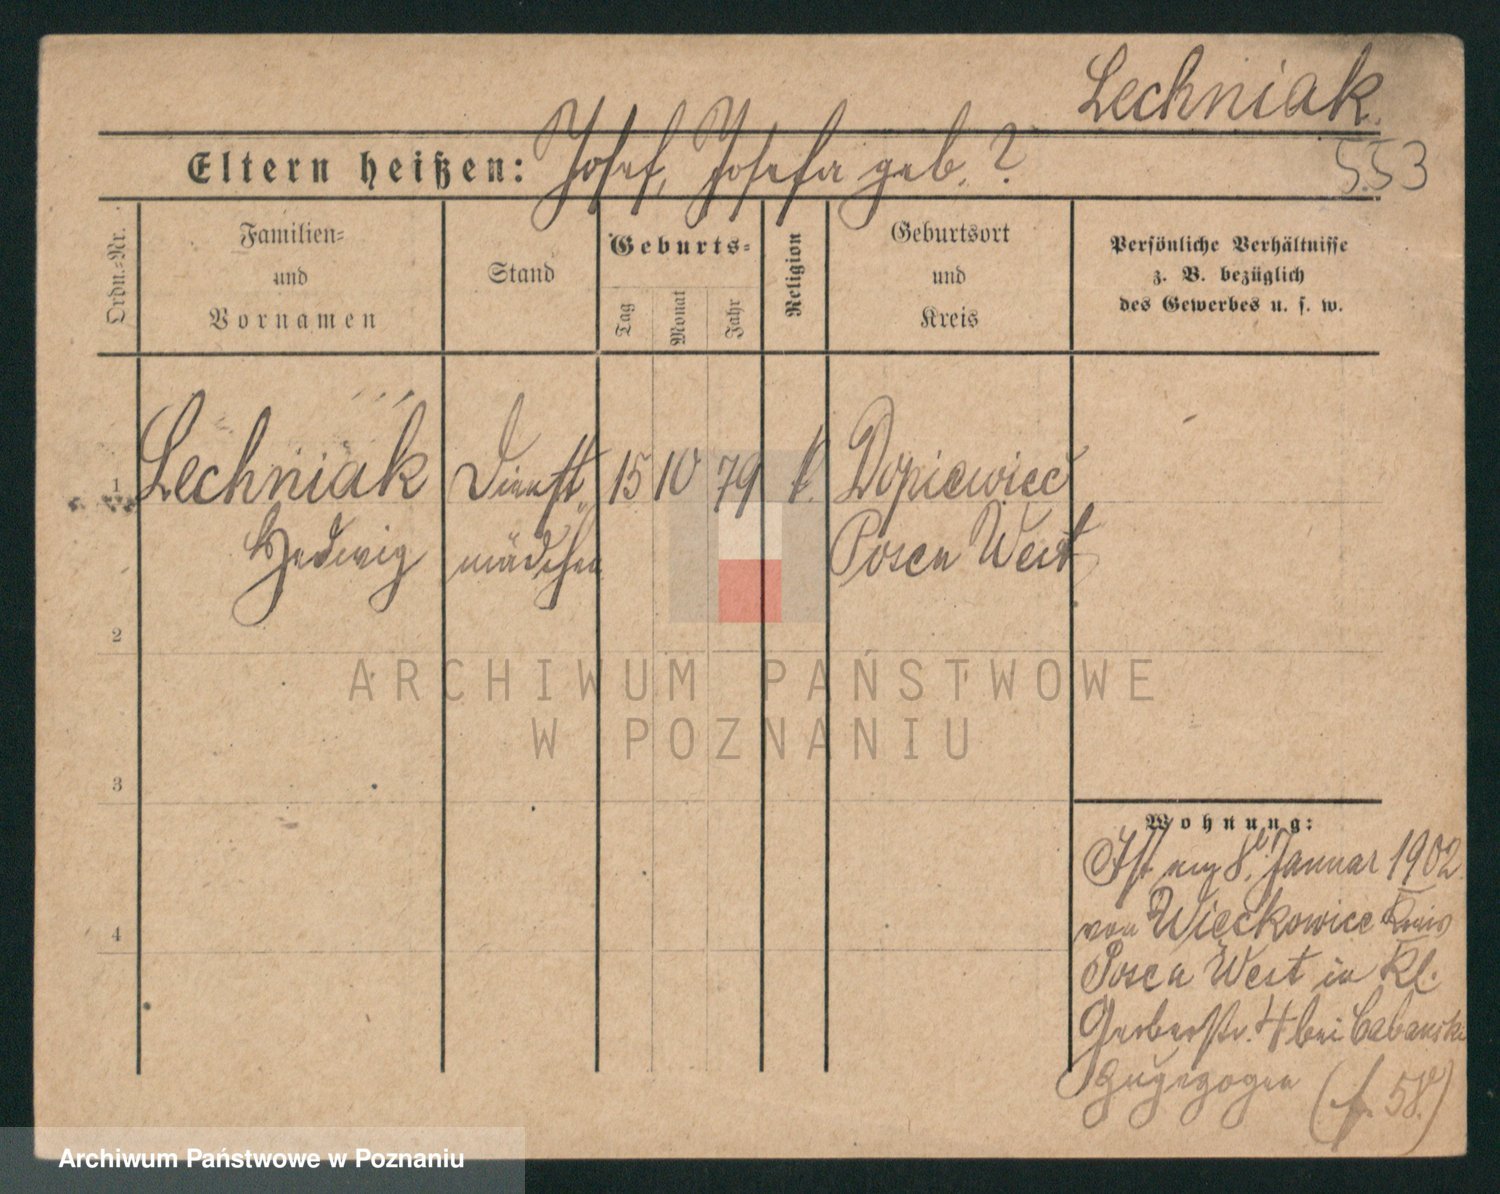 Lechniak.
553
Eltern heißen: Josef, Josefa geb. ?
Ordn.-Nr.
Familien-
und
Vornamen
Stand
Geburts-
Tag
Monat
Jahr
Religion
Geburtsort
und
Kreis
Persönliche Verhältnisse
z. B. bezüglich
des Gewerbes u. s. w.
1 Lechniak Dienst 15 10 79 k. Dopiewiec
Hedwig mädchen Posen West
2
3
4
Wohnung:
Ist am 8. Januar 1902
von Wieckowice Kreis
Posen West in Kl.
Gerberstr. 4 bei Cabanski
zugezogen (f. 58)
ARCHIWUM PAŃSTWOWE
W POZNANIU
Archiwum Państwowe w Poznaniu